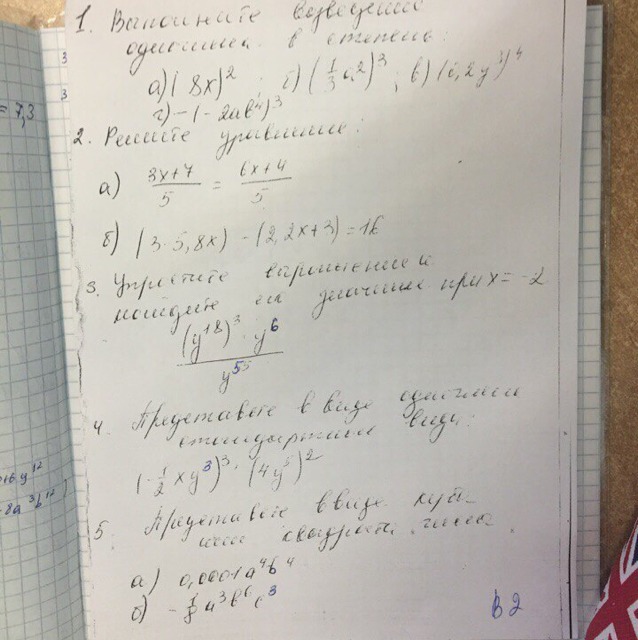 = 7,3
3
3
1. Выполните возведение
одночлена в степень:
а) (8x)²; б) (1/3 a²)³; в) (0,2y³)⁴
г) -(-2ab⁴)³
2. Решите уравнение:
а) (3x+7)/5 = (6x+4)/5
б) (3-5,8x) - (2,2x+3) = 16
3. Упростите выражение и
найдите его значение при x = -2
((y¹⁸)³ · y⁶)/y⁵⁵
4. Представьте в виде одночлена
стандартного вида:
(-1/2 xy³)³ · (4y⁵)²
5. Представьте в виде куба
или квадрата числа
а) 0,0001a⁴b⁴
б) -1/8 a³b⁶c³
В2